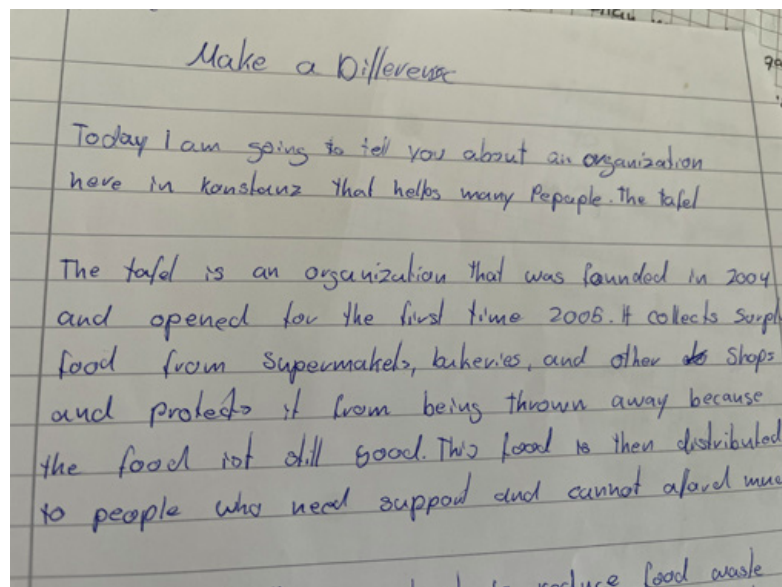 Make a Difference
Today I am going to tell you about an organization
here in Konstanz that helps many Pepaple. The tafel
The tafel is an organization that was founded in 2004
and opened for the first time 2006. It collects Surpl
food from Supermakets, bakeries, and other Shops
and protects it from being thrown away because
the food ist still good. This food is then distributed
to people who need support and cannot aford muc
reduce food waste